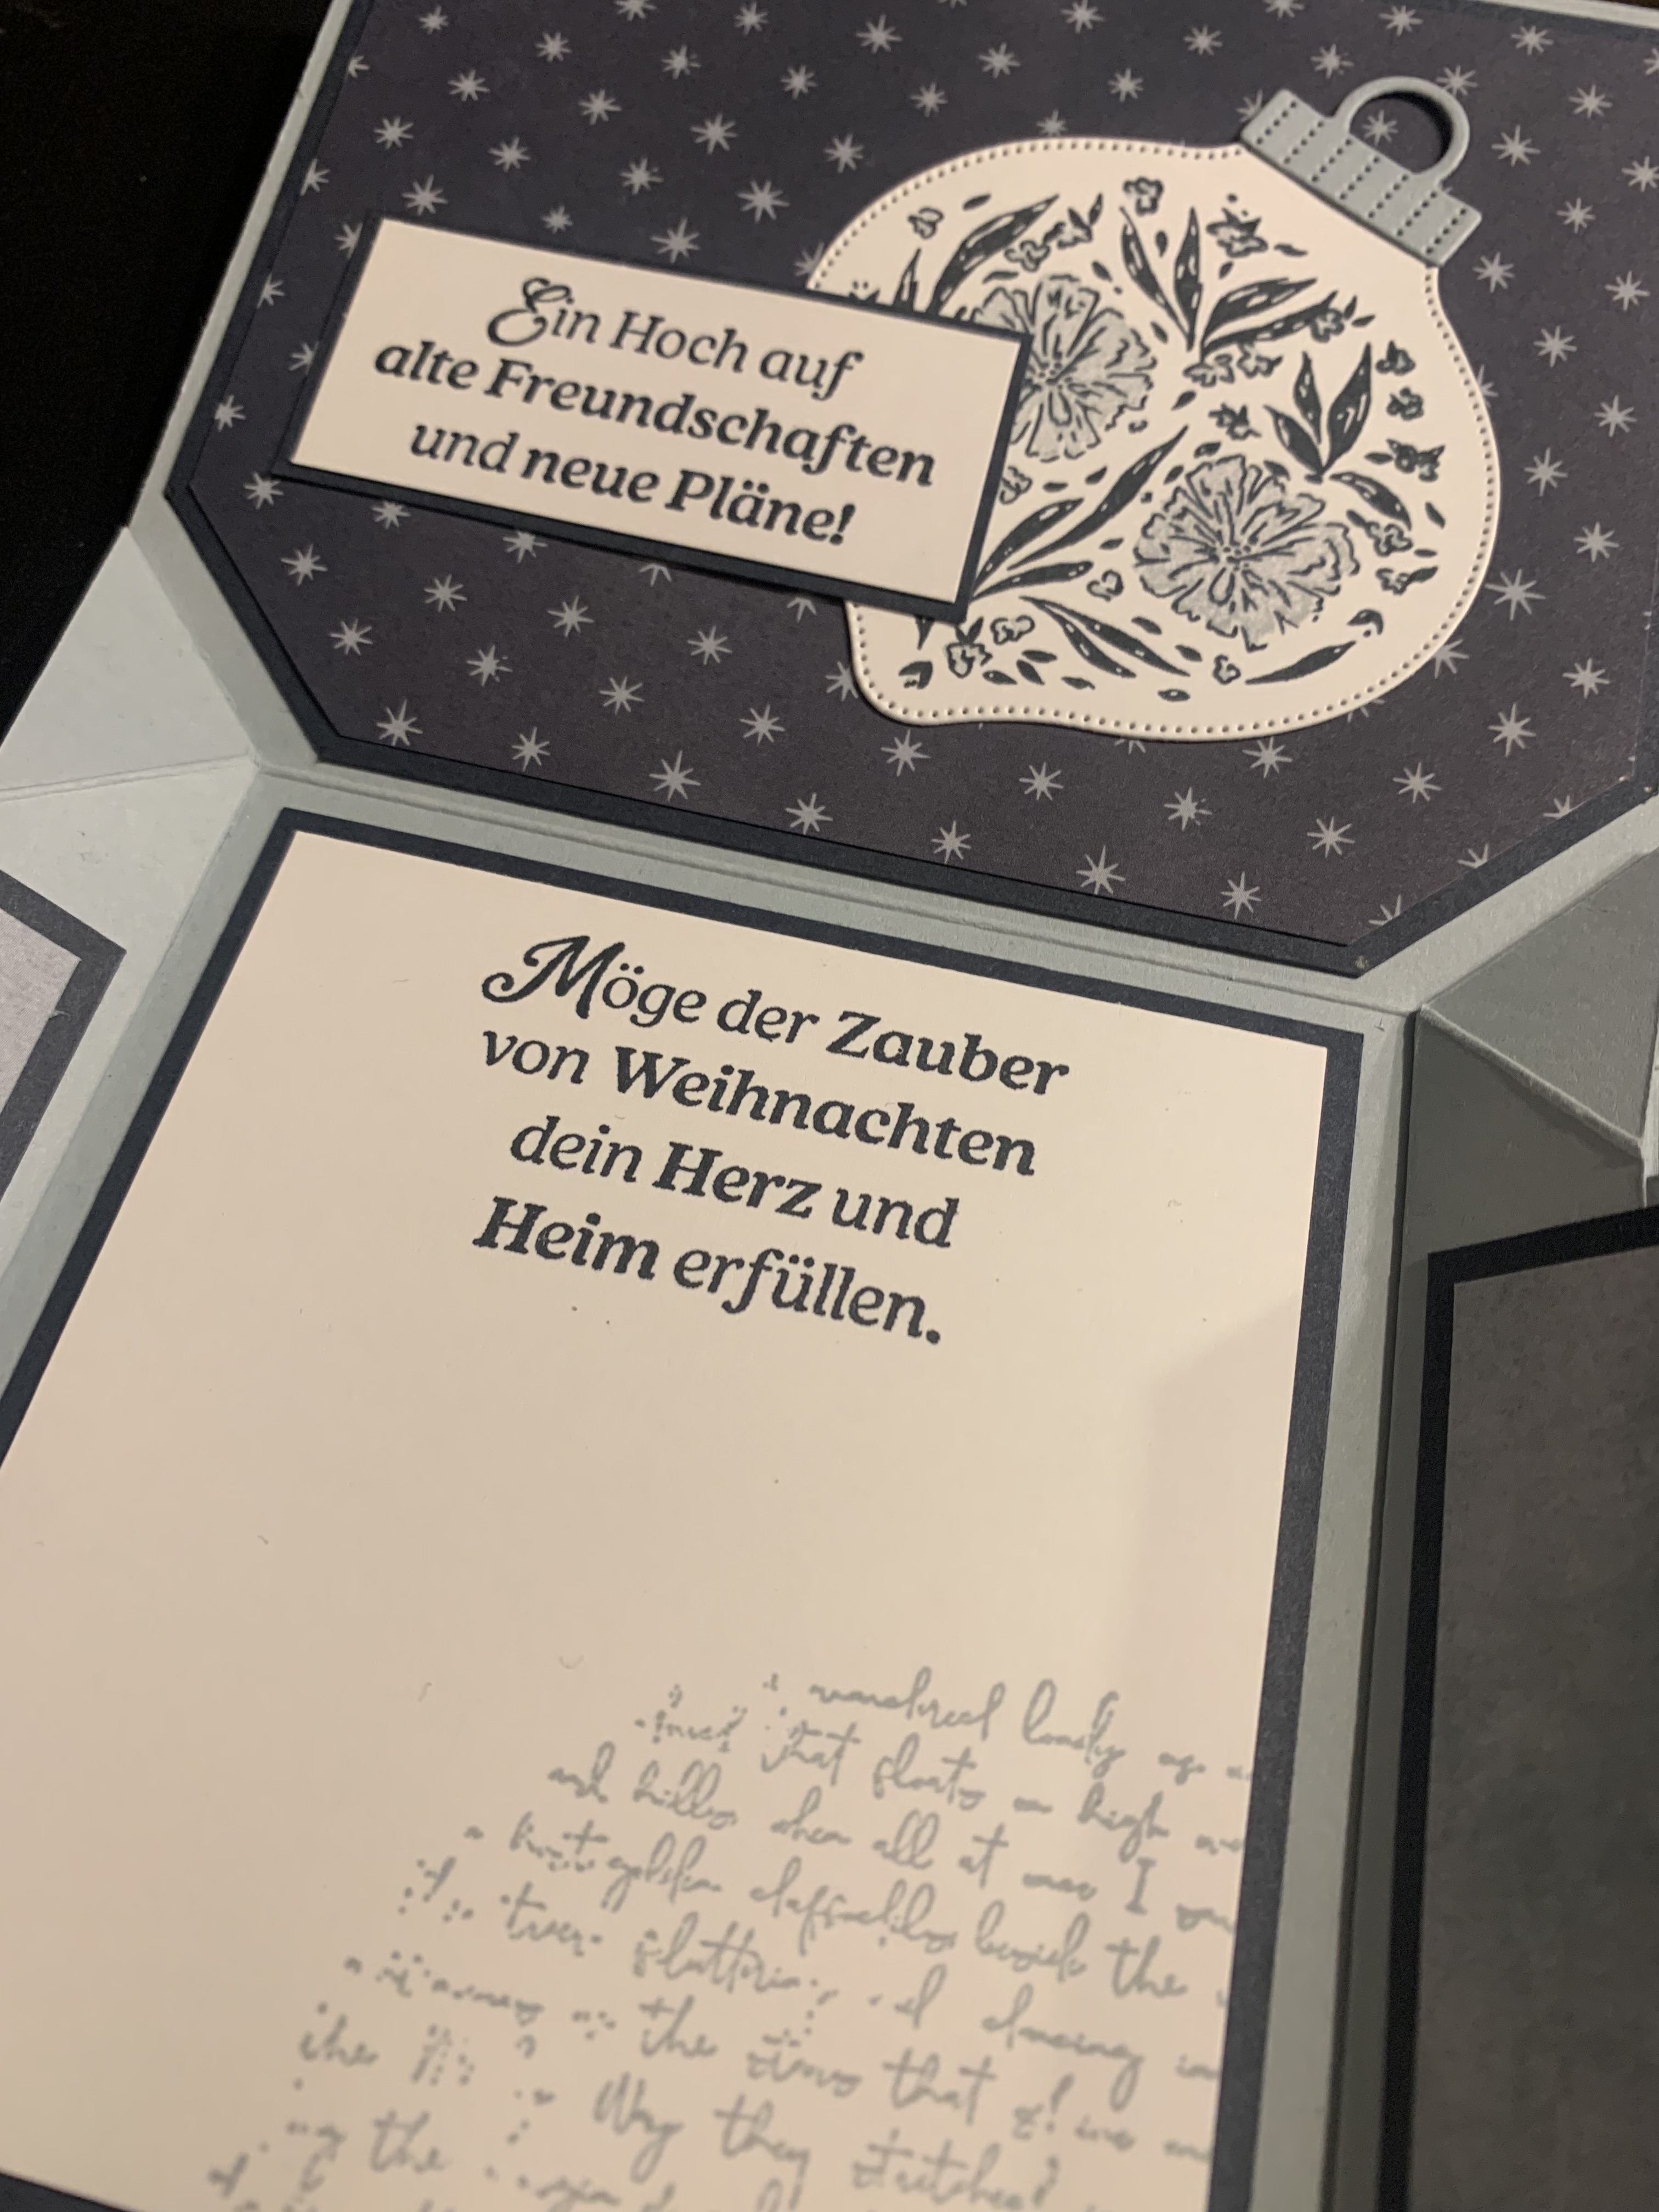 Ein Hoch auf
alte Freundschaften
und neue Pläne!
Möge der Zauber
von Weihnachten
dein Herz und
Heim erfüllen.
lonely
that floats on high
and hills when all at once I
golden daffodils beside the
dancing
the stars that
the Way they
the